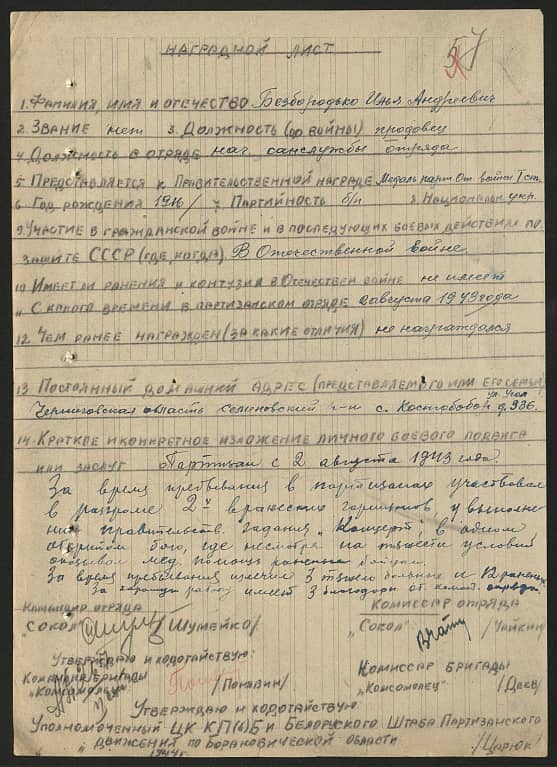 57
НАГРАДНОЙ ЛИСТ
1. ФАМИЛИЯ, ИМЯ И ОТЕЧЕСТВО Безбородько Илья Андреевич
2. ЗВАНИЕ нет 3. ДОЛЖНОСТЬ (ДО ВОЙНЫ) продавец
4. ДОЛЖНОСТЬ В ОТРЯДЕ нач. санслужбы отряда
5 ПРЕДСТАВЛЯЕТСЯ К ПРАВИТЕЛЬСТВЕННОЙ НАГРАДЕ Медаль парт. От. войны I ст.
6 ГОД РОЖДЕНИЯ 1916/ 7 ПАРТИЙНОСТЬ б/п 8 НАЦИОНАЛЬН укр.
9. УЧАСТИЕ В ГРАЖДАНСКОЙ ВОЙНЕ И В ПОСЛЕДУЮЩИХ БОЕВЫХ ДЕЙСТВИЯХ ПО
ЗАЩИТЕ СССР (ГДЕ, КОГДА) В Отечественной войне
10 ИМЕЕТ ЛИ РАНЕНИЯ И КОНТУЗИЯ В ОТЕЧЕСТВЕН ВОЙНЕ не имеет
11 С КАКОГО ВРЕМЕНИ В ПАРТИЗАНСКОМ ОТРЯДЕ 2 августа 1943 года
12. ЧЕМ РАНЕЕ НАГРАЖДЕН (ЗА КАКИЕ ОТЛИЧИЯ) не награждался
13 ПОСТОЯННЫЙ ДОМАШНИЙ АДРЕС (ПРЕДСТАВЛЯЕМОГО ИЛИ ЕГО СЕМЬИ)
Черниговская область Семеновский р-н с. Костобобр ул д. 936.
14. КРАТКОЕ И КОНКРЕТНОЕ ИЗЛОЖЕНИЕ ЛИЧНОГО БОЕВОГО ПОДВИГА
ИЛИ ЗАСЛУГ Партизан с 2 августа 1943 года.
За время пребывания в партизанах участвовал
в разгроме 2х вражеских гарнизонов, у выполне
нии правительств. задания „Концерт" в одном
открытом бою, где несмотря на тяжести условий
оказывал мед. помощь раненым бойцам.
За время пребывания излечил 3 тяжело больных и раненых
За хорошую работу имеет 3 благодарн от коман. отряда
КОМАНДИР ОТРЯДА
КОМИССАР ОТРЯДА
"СОКОЛ" /ШУМЕЙКО/
„СОКОЛ" /ЧАЙКИН/
УТВЕРЖДАЮ И ХОДОТАЙСТВУЮ:
КОМАНДИР БРИГАДЫ
КОМИССАР БРИГАДЫ
"КОМСОМОЛЕЦ" /ПОНАЛИН/
„КОМСОМОЛЕЦ" /ДЕЕВ/
УТВЕРЖДАЮ И ХОДОТАЙСТВУЮ
УПОЛНОМОЧЕННЫЙ ЦК КП(б)Б И БЕЛОРУСКОГО ШТАБА ПАРТИЗАНСКОГО
ДВИЖЕНИЯ ПО БАРАНОВИЧЕСКОЙ ОБЛАСТИ /ЦАРЮК/
1944 г.